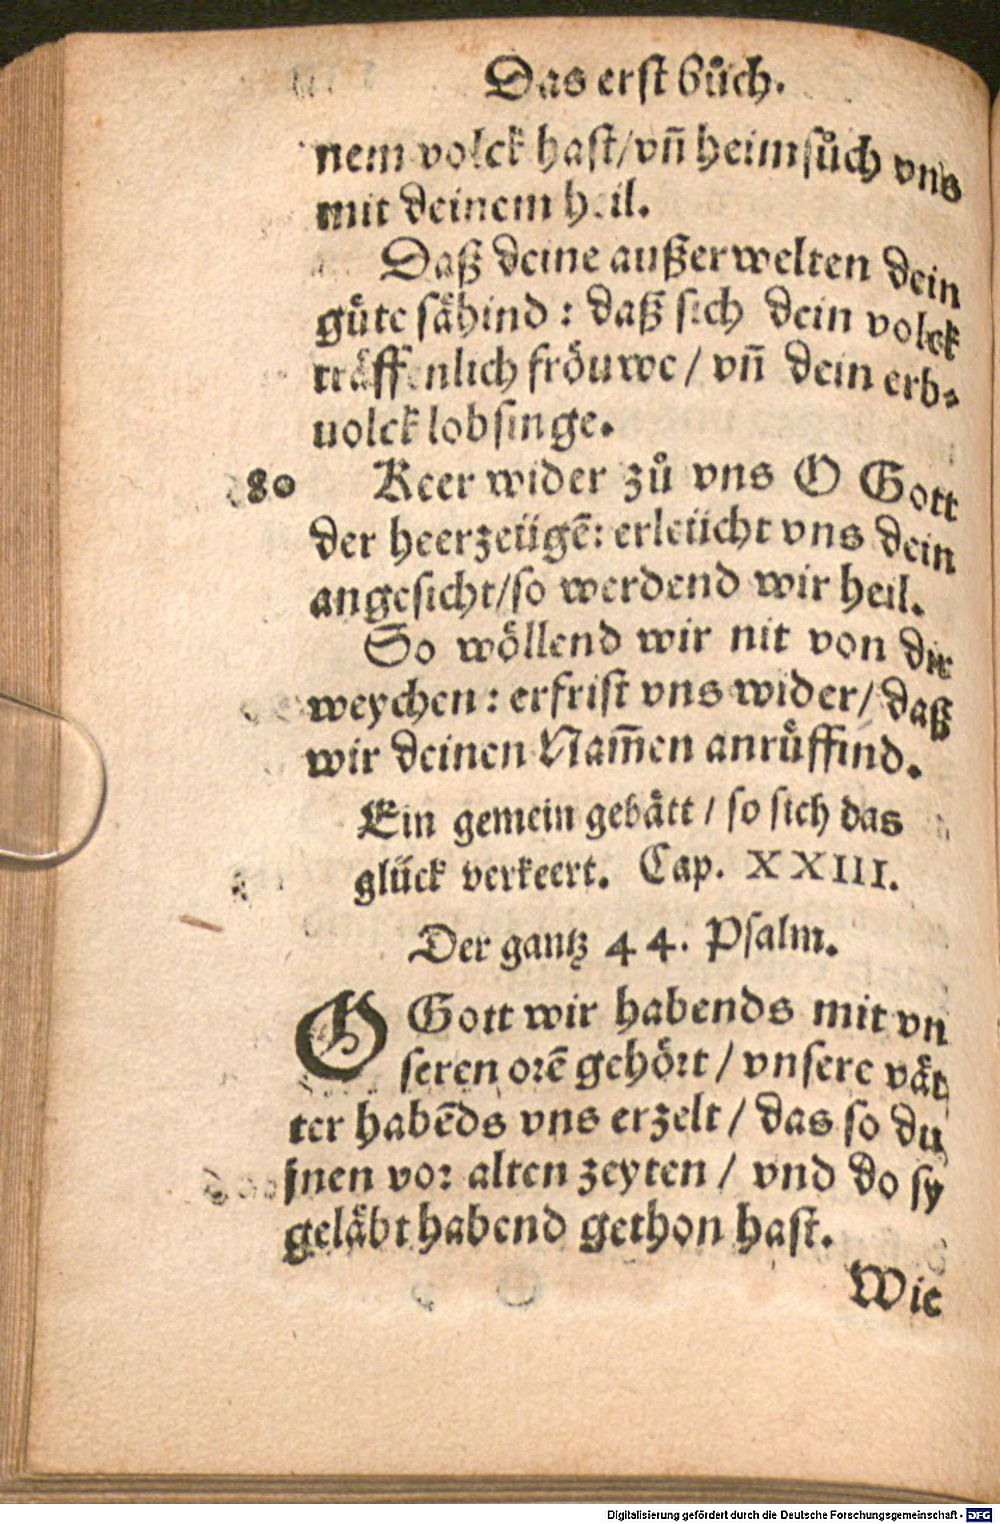 Das erst bůch.
nem volck hast/vñ heimsůch vns
mit deinem heil.
Daß deine außerwelten dein
gůte sähind : daß sich dein volck
träffenlich fröuwe / vñ dein erb⸗
uolck lobsinge.
80 Keer wider zů vns O Gott
der heerzeügē: erleücht vns dein
angesicht/so werdend wir heil.
So wöllend wir nit von dir
weychen : erfrist vns wider/ daß
wir deinen Nam̄en anrůffind.
Ein gemein gebätt / so sich das
glück verkeert. Cap. XXIII.
Der gantz 44. Psalm.
O Gott wir habends mit vn
seren orē gehört / vnsere vät
ter habēds vns erzelt / das so du
jnen vor alten zeyten / vnd do sy
geläbt habend gethon hast.
Wie
Digitalisierung gefördert durch die Deutsche Forschungsgemeinschaft - DFG